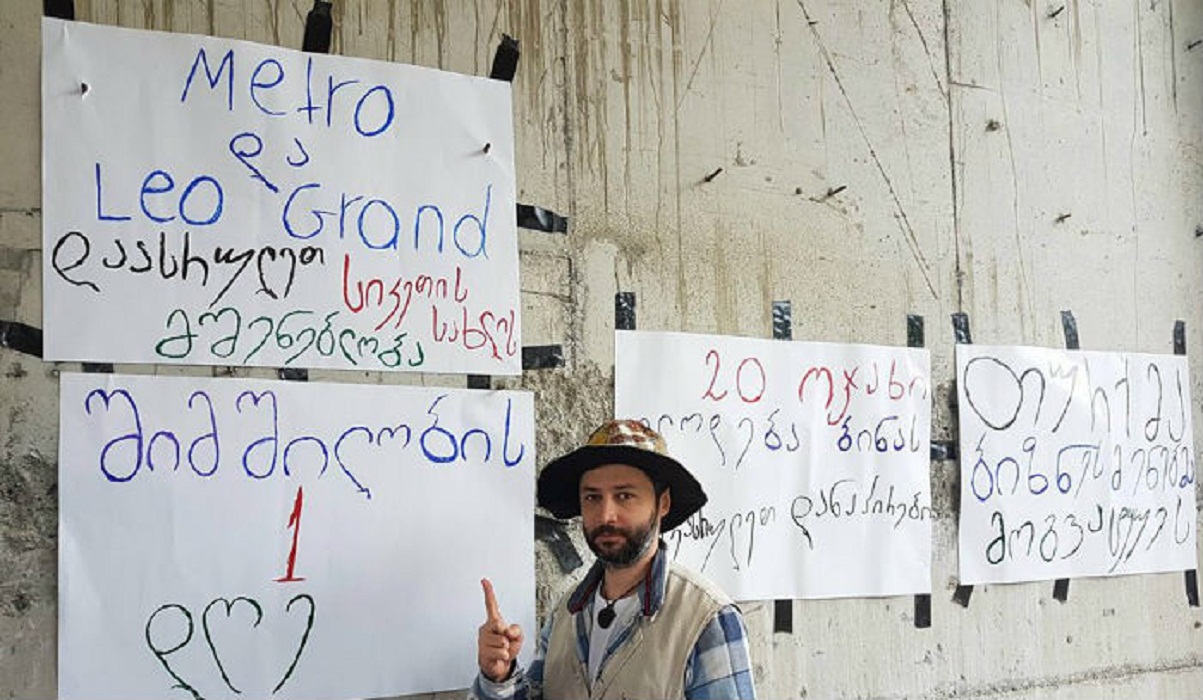 Metro
და
Leo Grand
დაასრულეთ სიკეთის
სახლის
მშენებლობა
შიმშილობის
1
დღე
20 ოჯახი
ელოდება ბინას
დანაპირები
თურქმა
ბიზნესმენებმა
მოგვატყუეს